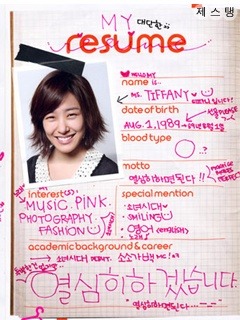 제스탱
MY 대단한
resume
HELLO MY
name is..
MS. TIFFANY
date of birth
AUG. 1, 1989
blood type
O
motto
열심히하면된다!!
interest(s)
MUSIC. PINK.
PHOTOGRAPHY.
FASHION
special mention
소녀시대
SMILING
영어 (ENGLISH)
academic background & career
소녀시대
열심히하겠습니다.
열심히하면된다